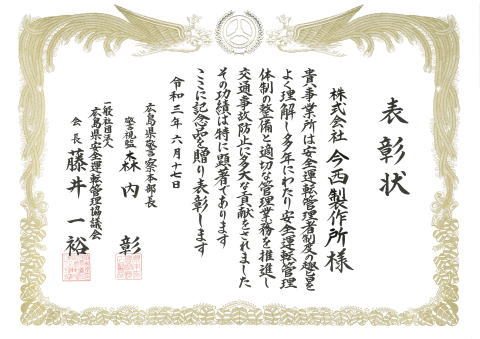 表彰状
株式会社 今西製作所様
貴事業所は安全運転管理者制度の趣旨を
よく理解し多年にわたり安全運転管理
体制の整備と適切な管理業務を推進し
交通事故防止に多大な貢献をされました
その功績は特に顕著であります
ここに記念品を贈り表彰します
令和三年六月十七日
広島県警察本部長
警視監 森内 彰
一般社団法人
広島県安全運転管理協議会
会長 藤井一裕